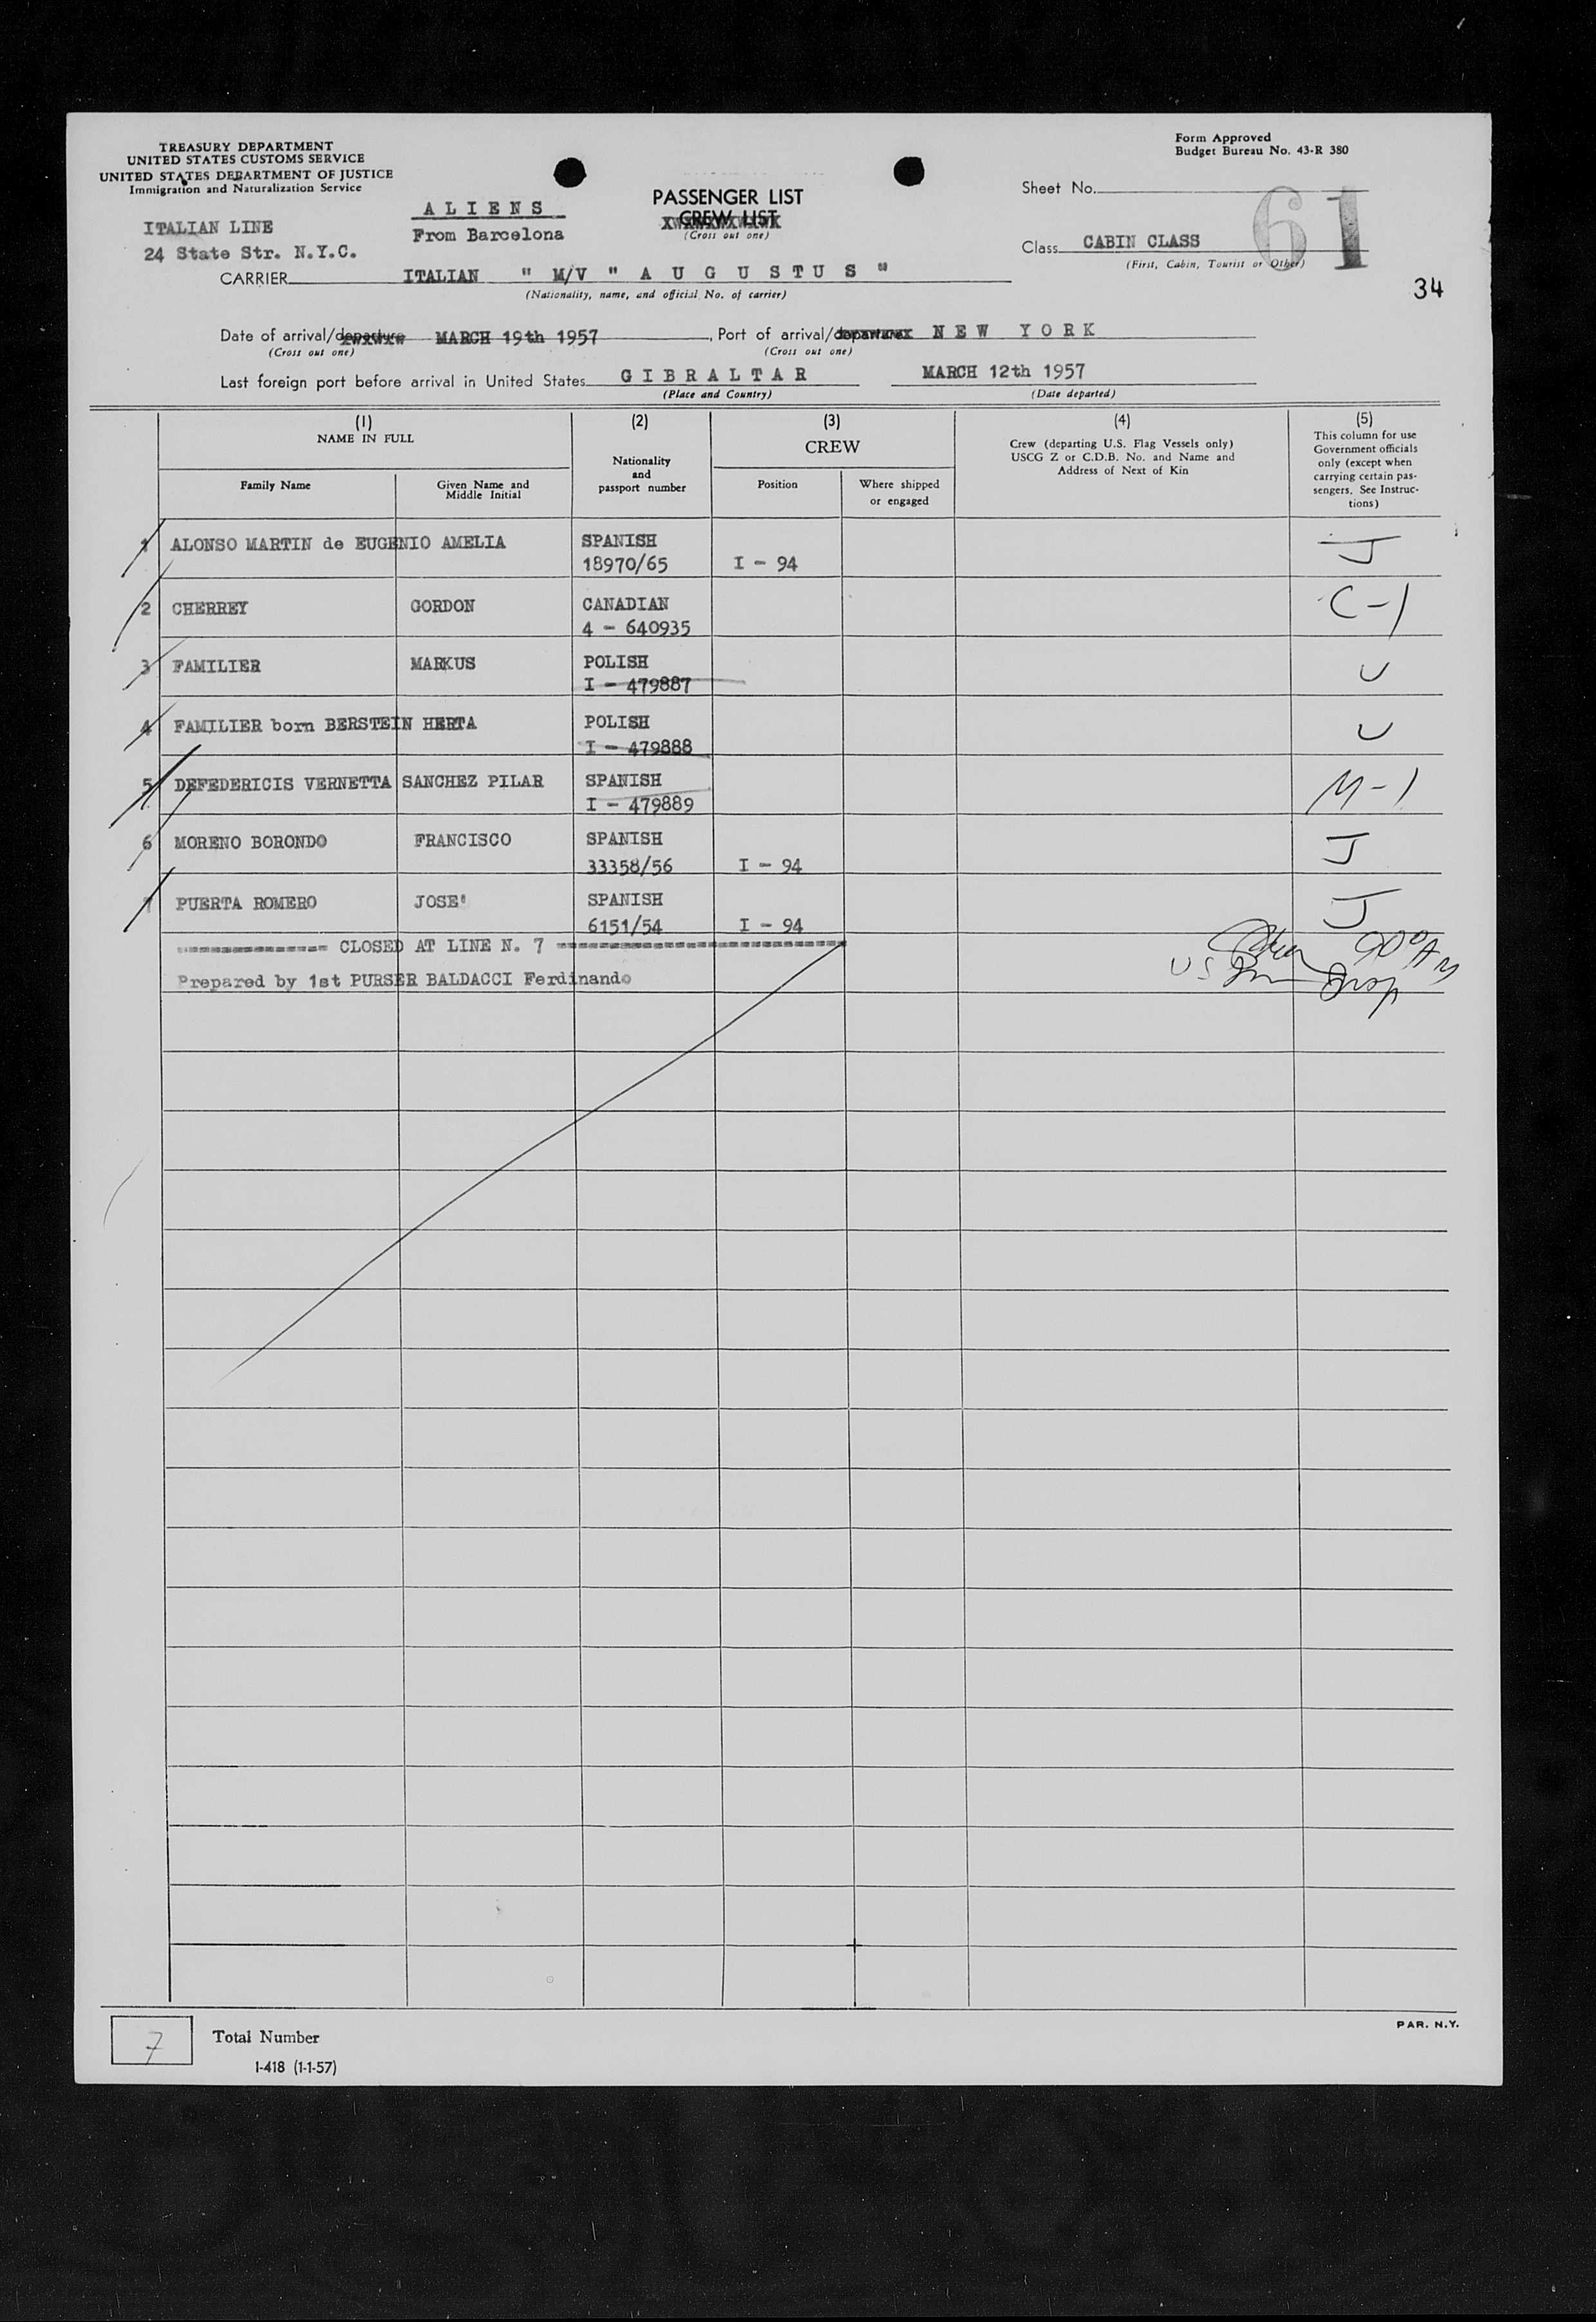 TREASURY DEPARTMENT
UNITED STATES CUSTOMS SERVICE
UNITED STATES DEPARTMENT OF JUSTICE
Immigration and Naturalization Service
Form Approved
Budget Bureau No. 43-R 380
ITALIAN LINE
24 State Str. N.Y.C.
ALIENS
From Barcelona
PASSENGER LIST
CREW LIST
(Cross out one)
Sheet No.
61
Class CABIN CLASS
(First, Cabin, Tourist or Other)
34
CARRIER ITALIAN " M/V " A U G U S T U S "
(Nationality, name, and official No. of carrier)
Date of arrival/departure MARCH 19th 1957, Port of arrival/departure N E W Y O R K
(Cross out one) (Cross out one)
Last foreign port before arrival in United States G I B R A L T A R MARCH 12th 1957
(Place and Country) (Date departed)
(1) NAME IN FULL
Family Name
Given Name and Middle Initial
(2)
Nationality and passport number
(3)
CREW
Position
Where shipped or engaged
(4)
Crew (departing U.S. Flag Vessels only)
USCG Z or C.D.B. No. and Name and
Address of Next of Kin
(5)
This column for use
Government officials
only (except when
carrying certain pas-
sengers. See Instruc-
tions)
1 ALONSO MARTIN de EUGENIO AMELIA SPANISH J
18970/65 I - 94
2 CHERREY GORDON CANADIAN C-1
4 - 640935
3 FAMILIER MARKUS POLISH U
I - 479887
4 FAMILIER born BERSTEIN HERTA POLISH U
I - 479888
5 DEFEDERICIS VERNETTA SANCHEZ PILAR SPANISH M-1
I - 479889
6 MORENO BORONDO FRANCISCO SPANISH J
33358/56 I - 94
7 PUERTA ROMERO JOSE' SPANISH J
6151/54 I - 94
============== CLOSED AT LINE N. 7 ===========================
Prepared by 1st PURSER BALDACCI Ferdinando
US Imm Insp
7 Total Number
I-418 (1-1-57)
PAR. N.Y.